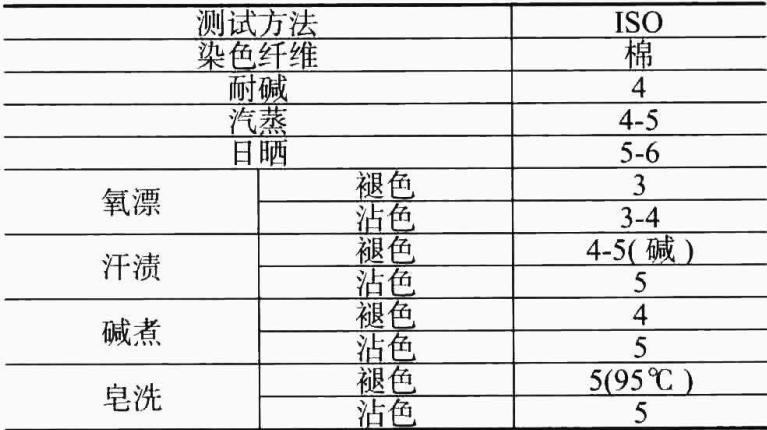 测试方法 ISO
染色纤维 棉
耐碱 4
汽蒸 4-5
日晒 5-6
氧漂 褪色 3
沾色 3-4
汗渍 褪色 4-5( 碱 )
沾色 5
碱煮 褪色 4
沾色 5
皂洗 褪色 5(95℃ )
沾色 5